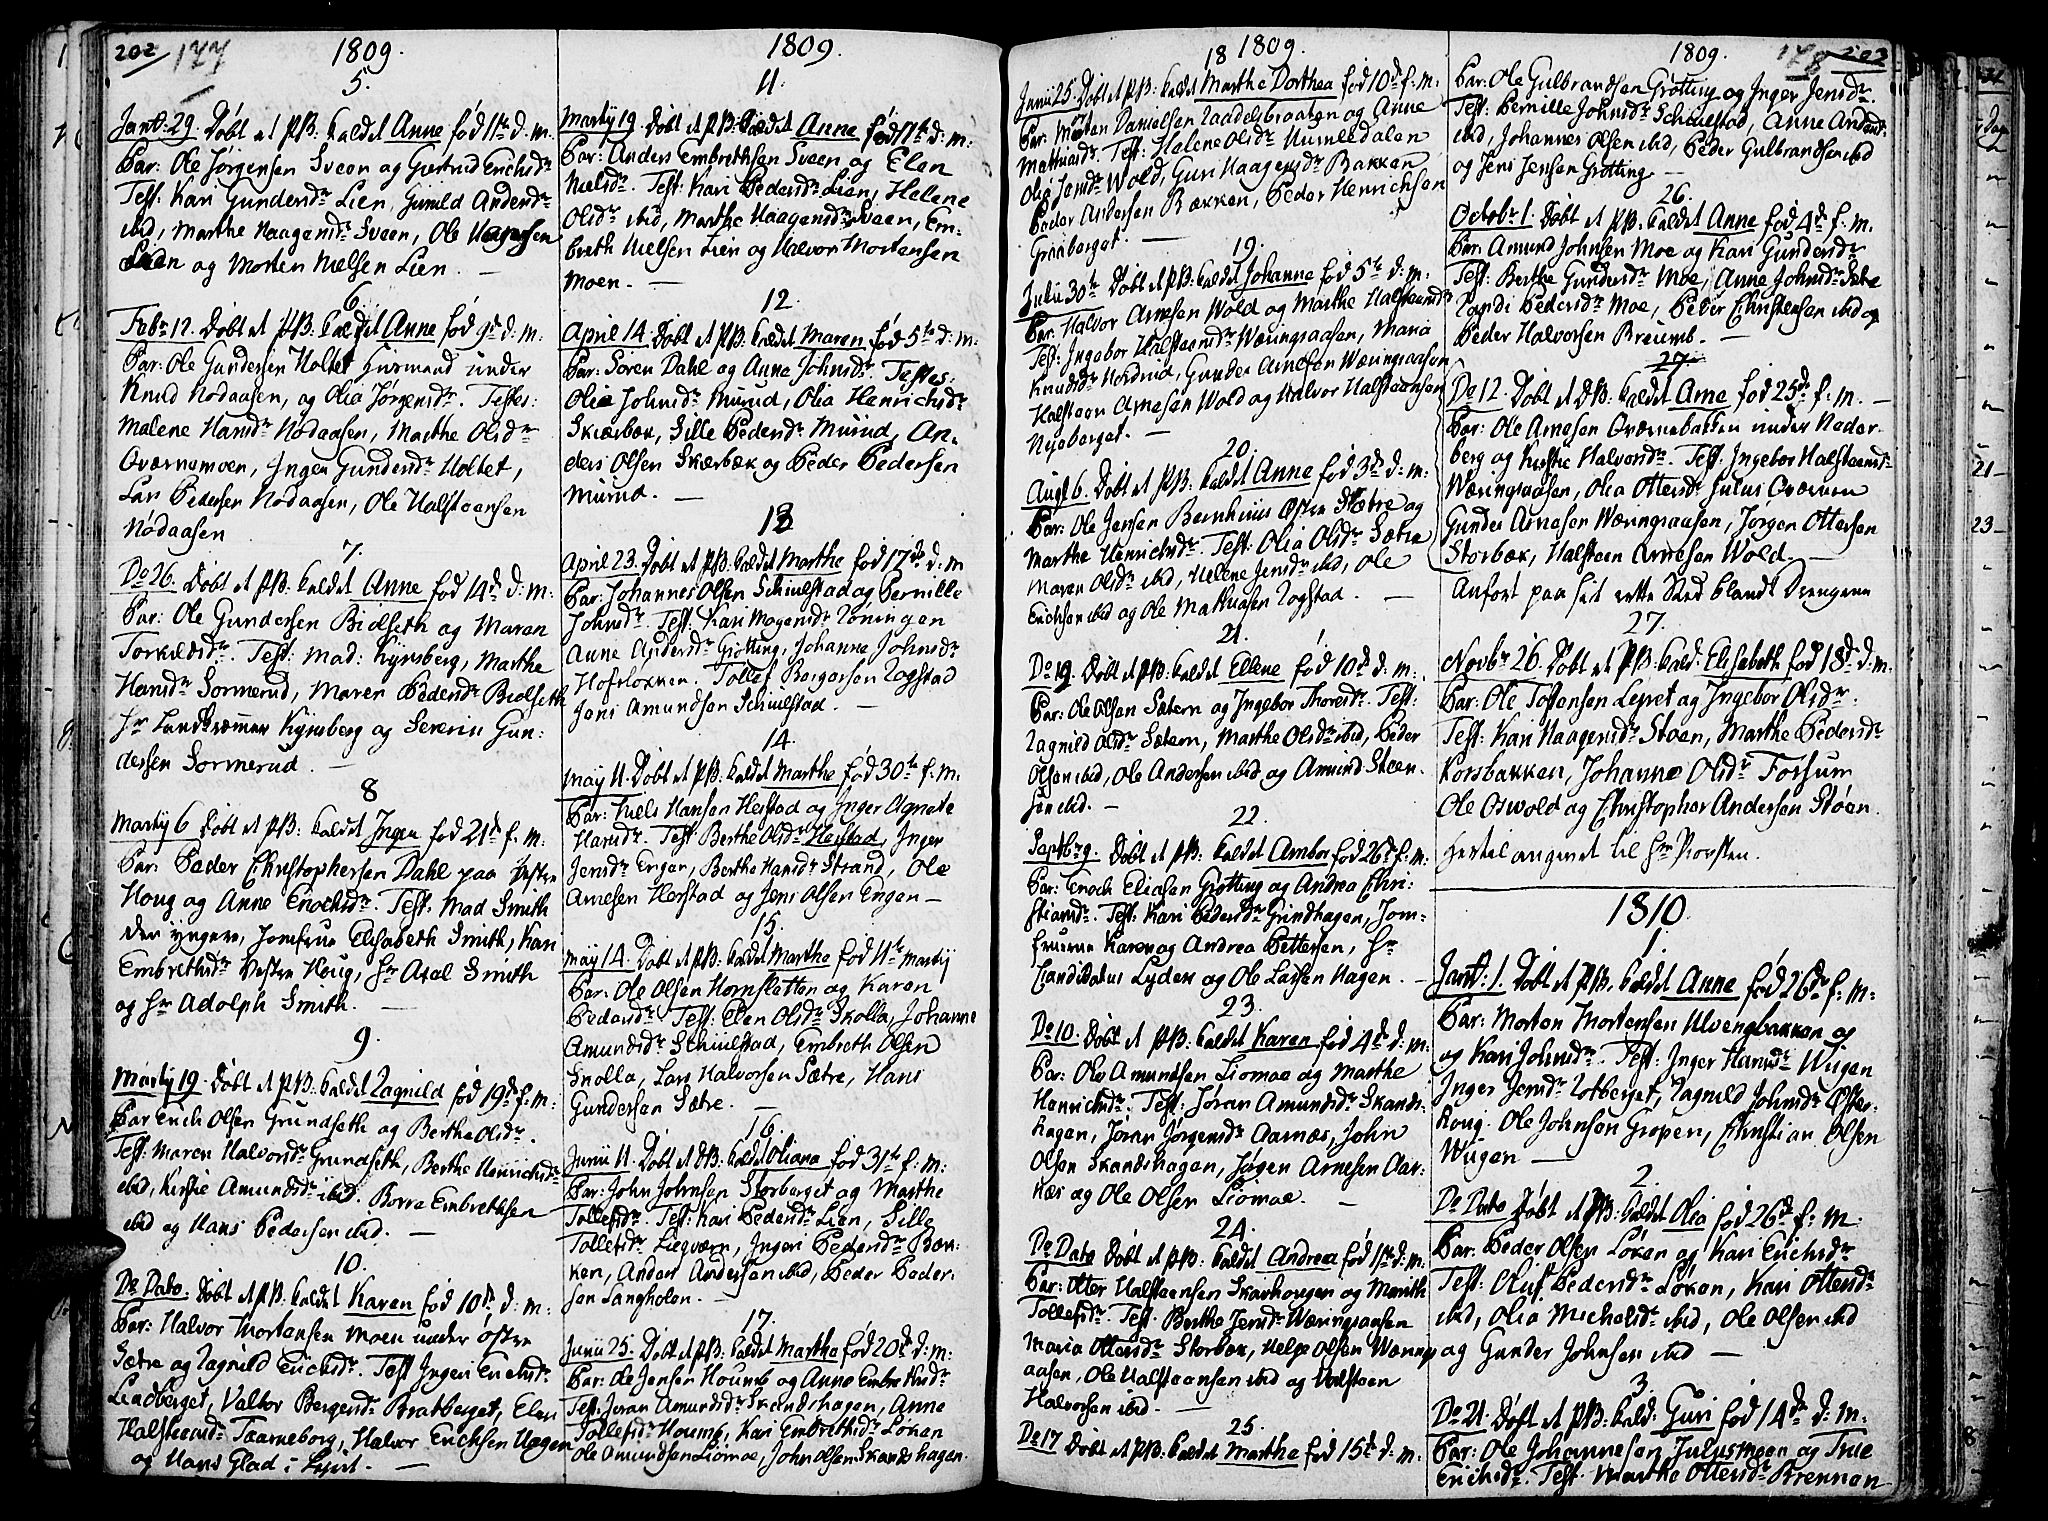 202 177
1809.
5.
Jant: 29. Døbt et PB: kaldet Anne fød 11te d: m.
Par: Ole Jørgensen Sveen og Giertrud Erichsdr
Test: Kari Gundersdr Lien, Gunild Andersdr
ibid, Marthe Haagensdr Sveen, Ole Haagensen
Lien og Morten Nielsen Lien. —
6.
Febr 12. Døbt et PB: kaldet Anne fød 9de d: m.
Par: Ole Gundersen Holtet Huusmand under
Knud Nodaasen, og Olia Jørgensdr. Testes:
Malene Hansdr Nodaasen, Marthe Olsdr
Qværnemoen, Inger Gundersdr Holtet,
Lars Pedersen Nodaasen, Ole Halsteensen
Nodaasen
7.
Do 26. Døbt et PB: kaldet Anne fød 14de d: m:
Par: Ole Gundersen Bidlseth og Maren
Torkildsdr. Test: Mad: Kynsberg, Marthe
Hansdr Sormerud, Maren Pedersdr Bidlseth
Hr Landkræmmer Kynsberg og Severin Gun:
dersen Sormerud. —
8
Martij 6 Døbt et PB: kaldet Ingen fød 21de f: m:
Par: Peder Christophersen Dahl paa Vestre
Houg og Anne Enochsdr. Test: Mad Smith
den yngere, Jomfrue Elisabeth Smith, Kari
Embrethsdr Vestre Houg, Hr Axel Smith
og Hr Adolph Smith. —
9.
Martij 19. Døbt et PB: kaldet Ragnild fød 19de f: m:
Par Erich Olsen Grundseth og Berthe Olsdr.
Test: Maren Halvorsdr Grundseth, Berthe Henrichsdr
ibid, Kirstie Amundsdr ibid. Borre Embrethsen
ibid og Hans Pedersen ibid. —
10.
Do Dato. Døbt et PB: kaldet Karen fød 10de d: m:
Par: Halvor Mortensen Moen under Østre
Sætre og Ragnild Erichsdr. Test Ingeri Erichsdr
Lindberget, Valbor Bergersdr Bratberget, Elen
Halsteensdr Taarneborg, Halvor Erichsen Hagen
og Hans Glad i Lyset. —
1809.
11.
Martij 19. Døbt et PB: kaldet Anne fød 7de d: m:
Par: Anders Embrethsen Sveen og Elen
Nielsdr. Test: Kari Pedersdr Lien, Helene
Olsdr ibid, Marthe Haagensdr Sveen, Em-
breth Nielsen Lien og Halvor Mortensen
Moen. —
12
April 14. Døbt et PB: kaldet Maren fød 5te d: m:
Par: Søren Dahl og Anne Johnsdr Testes:
Olia Johnsdr Murud, Olia Henrichsdr
Skiærbæk, Sille Pedersdr Murud, An-
ders Olsen Skærbæk og Peder Pedersen
Murud. —
13
April 23. Døbt et PB: kaldet Marthe fød 17de d: m
Par: Johannes Olsen Schiulstad og Pernille
Johnsdr. Test: Kari Mogensdr Roningen
Anne Andersdr Grotting, Johanne Johnsdr
Hofslokken. Tollef Borgersen Rogstad
Jens Amundsen Schiulstad. —
14.
May 11. Døbt et PB: kaldet Marthe fød 30te f: m.
Par: Niels Hansen Herstad og Inger Agnete
Hansdr. Test: Berthe Olsdr Herstad, Inger
Jensdr Engen, Berthe Hansdr Strand, Ole
Arnesen Herstad og Jens Olsen Engen —
15.
May 14. Døbt et PB: kaldet Marthe fød 11te Martij
Par: Ole Olsen Hornslatten og Karen
Pedersdr Test: Elen Olsdr Skolla, Johanne
Amundsdr Schiulstad, Embreth Olsen
Skolla, Lars Halvorsen Sætre, Hans
Gundersen Sætre. —
16.
Junii 11. Døbt et PB: kaldet Oliana fød 31te f: m:
Par: John Johnsen Storberget og Marthe
Tollefsdr. Test: Kari Pedersdr Lien, Sille
Tollefsdr Liegværn, Ingeri Pedersdr Bæk-
ken, Anders Andersen ibid, Peder Peder-
sen Langholen. —
17.
Junii 25. Døbt et PB: kaldet Martha fød 20de d: m:
Par: Ole Jensen Houms og Anne Embrethsdr
Test: Joran Amundsdr Skandshagen, Anne
Tollefsdr Houms, Kari Embrethsdr Loken
Ole Amundsen Liomoe, John Olsen Skandshagen.
18 1809.
Junii 25. Døbt et PB: kaldet Marthe Dorthea fød 10de f: m.
Par: Morten Danielsen Raadelsbraaten og Anne
Mathiasdr. Test: Helene Olsdr Humledalen
Olia Jensdr Wold, Guri Haagensdr Bakken
Peder Andersen Bækken, Peder Henrichsen
Graaberget. —
19.
Julii 30te Døbt et PB: kaldet Johanne fød 5te d: m.
Par: Halvor Arnesen Wold og Marthe Halsteensdr
Test: Ingebor Halsteensdr Wæringsaasen, Maria
Knudsdr Nordrud, Gunder Arnesen Wæringsaasen
Halsteen Arnesen Wold og Halvor Halsteensen
Nyeberget. —
20.
Augst 6. Døbt et PB: kaldet Anne fød 3de d: m:
Par: Ole Jensen Bernhuus Østre Sætre og
Marthe Henrichsdr. Test: Olia Olsdr Sætre
Maren Olsdr ibid, Helene Jensdr ibid, Ole
Erichsen ibid og Ole Mathiasen Rogstad. —
21.
Do 19. Døbt et PB: kaldet Ellene fød 10de d: m:
Par: Ole Olsen Sætern og Ingebor Thoresdr. Test:
Ragnild Olsdr Sætern, Marthe Olsdr ibid, Peder
Olsen ibid, Ole Andersen ibid og Amund Steen-
sen ibid. —
22.
Septbr 9. Døbt et PB: kaldet Ambor fød 26de f: m:
Par: Enoch Eliasen Grotting og Andrea Chri-
stiansdr. Test: Kari Pedersdr Grindhagen, Jom-
fruerne Karen og Andrea Pettersen, Hr
Candidatus Lyders og Ole Larsen Hagen. —
23.
Do 10. Døbt et PB: kaldet Karen fød 4de d: m:
Par: Ole Amundsen Liomoe og Marthe
Henrichsdr. Test: Joran Amundsdr Skands-
hagen, Joran Jørgensdr Aarnæs, John
Olsen Skandshagen, Jørgen Arnesen Aar-
næs og Ole Olsen Liomoe. —
24.
Do Dato Døbt et PB: kaldet Andrea fød 11te d: m:
Par: Otter Halsteensen Skavhougen og Marith
Tollefsdr. Test: Berthe Jensdr Wæringsaasen
Maria Ottersdr Storbæk, Helge Olsen Wærings
aasen, Ole Halsteensen ibid og Halsteen
Halvorsen ibid. —
25.
Do 17 Døbt et PB: kaldet Marthe fød 15de d: m.
1809. 178 203
Par: Ole Gulbrandsen Grotting og Inger Jensdr.
Test: Pernille Johnsdr Schiulstad, Anne Andersdr
ibid, Johannes Olsen ibid, Peder Gulbrandsen ibid
og Jens Jensen Grotting. —
26.
Octobr 1. Døbt et PB: kaldet Anne fød 4de f. m.
Par: Amund Johnsen Moe og Kari Gundersdr
Test: Berthe Gundersdr Moe, Anne Johnsdr Sætre
Randi Pedersdr Moe, Peder Christensen ibid og
Peder Halvorsen Breumb. —
27.
Do 12. Døbt et DB: kaldet Arne fød 25de f. m. —
Par: Ole Arnesen Qværnebakken under Neder-
berg og Kirstie Halvorsdr. Test: Ingebor Halsteensdr
Wæringsaasen, Olia Ottersdr Julus Qværnen
Gunder Arnesen Wæringsaasen, Jørgen Ottersen
Storbæk, Halsteen Arnesen Wold. —
Anført paa sit rette Sted blandt Drengene
27.
Novbr 26. Døbt et PB: kald: Elisabeth fød 18de d: m:
Par: Ole Tostensen Lepret og Ingebor Olsdr.
Test: Kari Haagensdr Støen, Marthe Pedersdr
Korsbakken, Johanne Olsdr Forsum
Ole Oswold og Christopher Andersen Støen.
Hertil angivet til Hr Provsten.
1810.
1.
Jant: 1. Døbt et PB. kaldet Anne fød 26de f: m:
Par: Morten Mortensen Ulvengbakken og
og Kari Johnsdr. Test: Inger Hansdr Wiigen
Inger Jensdr Rotberget, Ragnild Johnsdr Øster-
houg. Ole Johnsen Gropen, Christian Olsen
Wiigen —
2.
Do Dato Døbt et PB: kaldet Olia fød 26de f: m.
Par: Peder Olsen Loken og Kari Erichsdr
Test: Oluf Pedersdr Loken, Kari Ottersdr
ibid, Olia Michelsdr ibid, Ole Olsen ibid
og Gunder Johnsen ibid —
3.
Do 21. Døbt et PB: kald: Guri fød 14de d: m.
Par: Ole Johannesen Julusmoen og True
Erichsdr. Test: Marthe Ottersdr Brennen